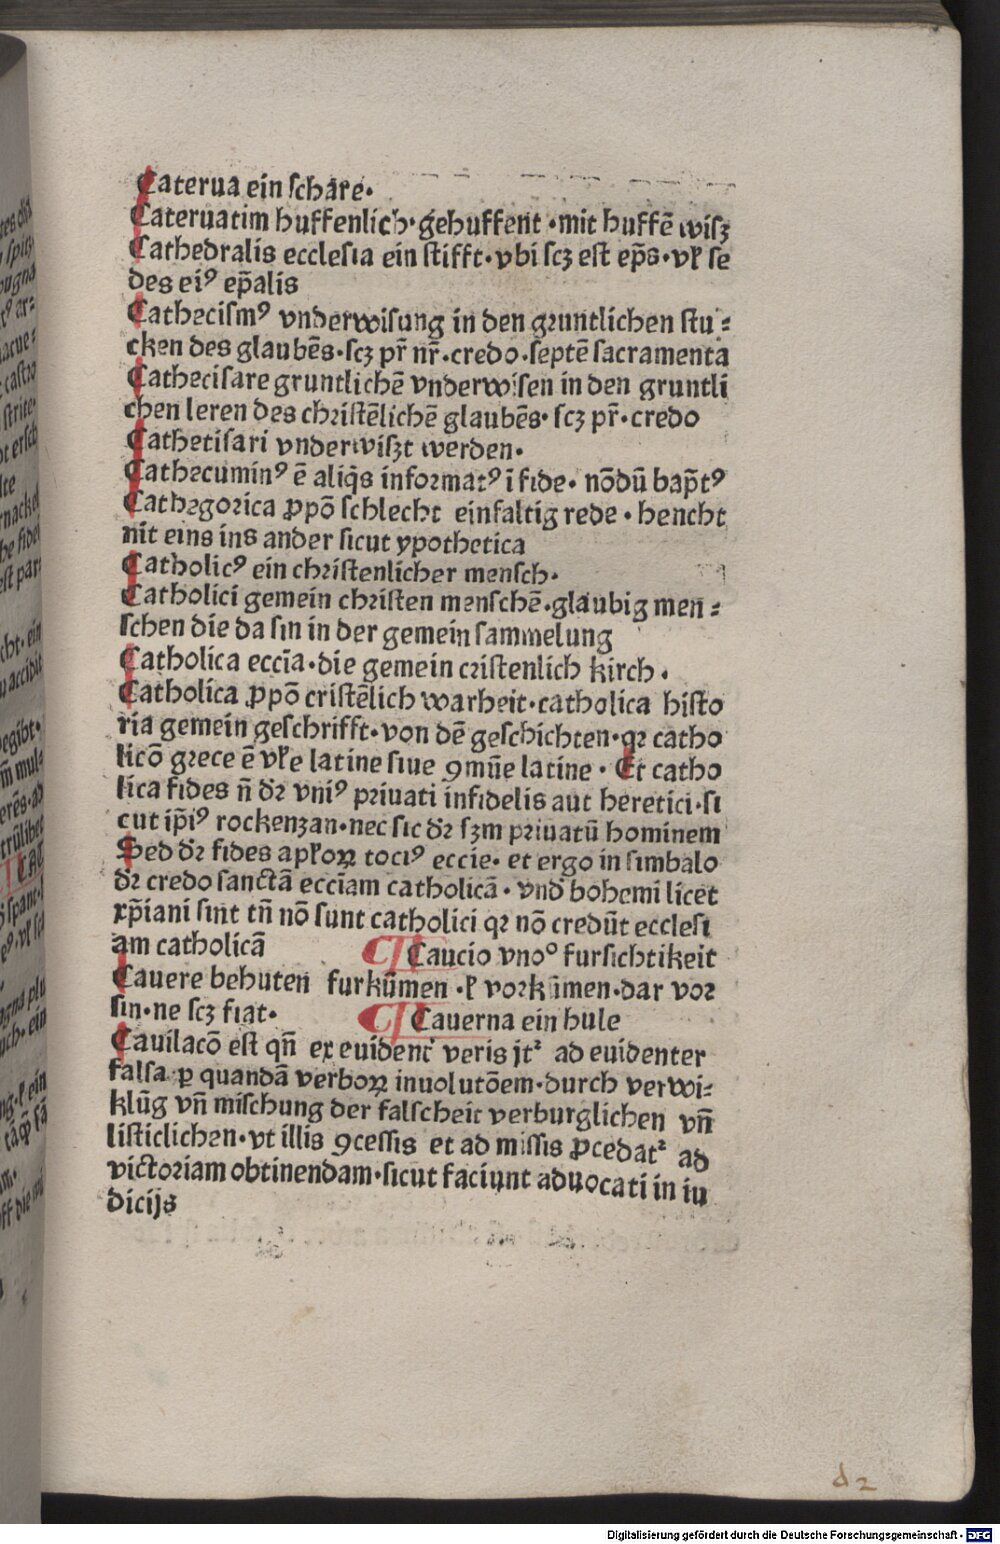 Caterua ein schare·
Cateruatim huffenlich·gehuffent·mit huffē wisꝫ
Cathedralis ecclesia ein stifft·vbi scꝫ est ep̄s·vł se
des eiꝰ ep̄alis
Cathecismꝰ vnderwisung in den gruntlichen stu⸗
cken des glaubēs·scꝫ pr̄ nr̄·credo·septē sacramenta
Cathecisare gruntlichē vnderwisen in den gruntli
chen leren des christēlichē glaubēs·scꝫ pr̄·credo
Cathetisari vnderwisꝫt werden·
Cathecuminꝰ ē aliq̄s informatꝰ ī fide·nōdū bap̄tꝰ
Cathegorica ꝓpō schlecht einfaltig rede·hencht
nit eins ins ander sicut ypothetica
Catholicꝰ ein christenlicher mensch·
Catholici gemein christen menschē·glaubig men⸗
schen die da sin in der gemein sammelung
Catholica eccīa·die gemein cristenlich kirch·
Catholica ꝓpō cristēlich warheit·catholica histo
ria gemein geschrifft·von dē geschichten·qꝛ catho
licō grece ē vłe latine siue ꝯmūe latine·Et catho
lica fides n̄ dꝛ vniꝰ priuati infidelis aut heretici·si
cut ip̄iꝰ rockenzan·nec sic dꝛ sꝫm priuatū hominem
Sed dꝛ fides apłoꝝ tociꝰ eccie·et ergo in simbalo
dꝛ credo sanctā eccīam catholicā·vnd bohemi licet
xp̄iani sint tn̄ nō sunt catholici qꝛ nō credūt ecclesi
am catholicā ¶ Caucio vnoº fursichtikeit
Cauere behuten furkūmen·ł vorkūmen·dar vor
sin·ne scꝫ fiat· ¶ Cauerna ein hule
Cauilacō est qn̄ ex euidenť veris jtᷣ ad euidenter
falsa ꝑ quandā verboꝝ inuolutōem·durch verwi⸗
klūg vn̄ mischung der falscheit verburglichen vn̄
listiclichen·vt illis ꝯcessis et ad missis ꝓcedatᷣ ad
victoriam obtinendam·sicut faciunt aduocati in iu
dicijs
d2
Digitalisierung gefördert durch die Deutsche Forschungsgemeinschaft - DFG